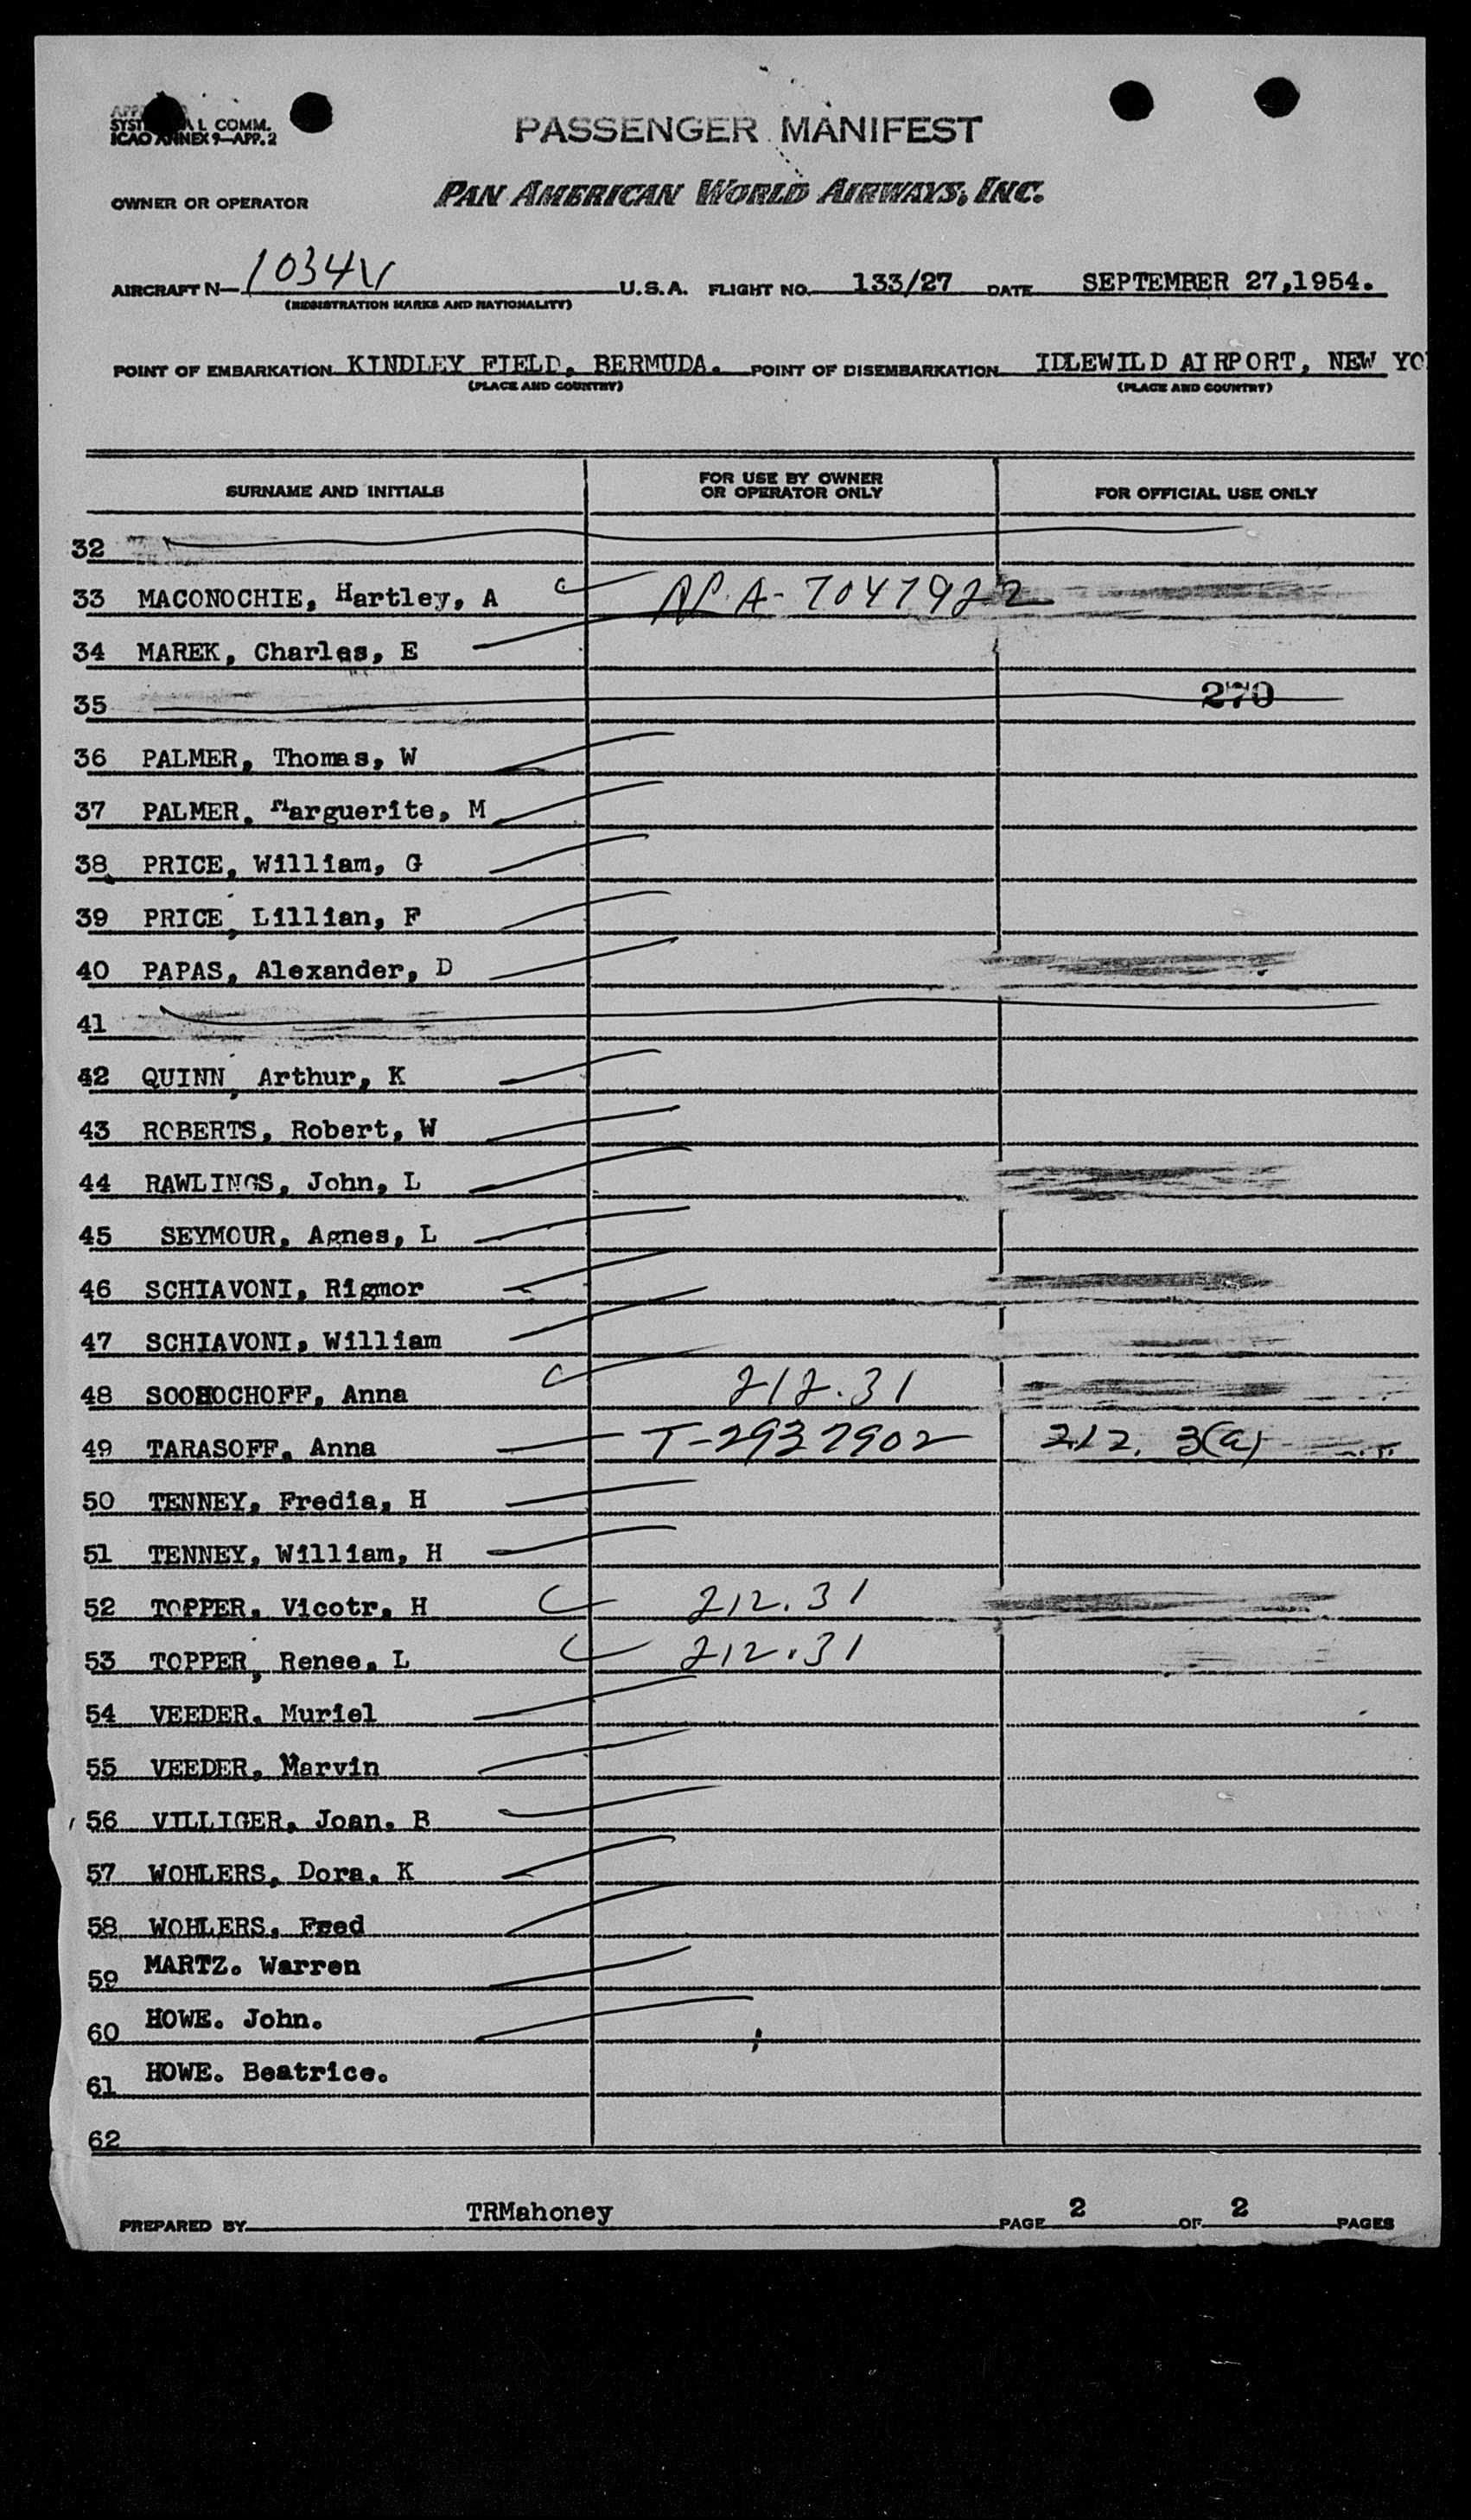 SYST AL COMM.
ICAO ANNEX 9—APP. 2
PASSENGER MANIFEST
OWNER OR OPERATOR PAN AMERICAN WORLD AIRWAYS, INC.
AIRCRAFT N— 1034V U.S.A. FLIGHT NO. 133/27 DATE SEPTEMBER 27,1954.
(REGISTRATION MARKS AND NATIONALITY)
POINT OF EMBARKATION KINDLEY FIELD, BERMUDA. POINT OF DISEMBARKATION IDLEWILD AIRPORT, NEW YO
(PLACE AND COUNTRY) (PLACE AND COUNTRY)
SURNAME AND INITIALS FOR USE BY OWNER OR OPERATOR ONLY FOR OFFICIAL USE ONLY
32
33 MACONOCHIE, Hartley, A A-7047922
34 MAREK, Charles, E
35 270
36 PALMER, Thomas, W
37 PALMER, Marguerite, M
38 PRICE, William, G
39 PRICE, Lillian, F
40 PAPAS, Alexander, D
41
42 QUINN, Arthur, K
43 ROBERTS, Robert, W
44 RAWLINGS, John, L
45 SEYMOUR, Agnes, L
46 SCHIAVONI, Rigmor
47 SCHIAVONI, William
48 SOOHOCHOFF, Anna 212.31
49 TARASOFF, Anna T-2937902 212. 3(a)
50 TENNEY, Fredia, H
51 TENNEY, William, H
52 TOPPER, Vicotr, H 212.31
53 TOPPER, Renee, L 212.31
54 VEEDER, Muriel
55 VEEDER, Marvin
56 VILLIGER, Joan, B
57 WOHLERS, Dora, K
58 WOHLERS, Fred
59 MARTZ. Warren
60 HOWE. John.
61 HOWE. Beatrice.
62
PREPARED BY TRMahoney PAGE 2 OF 2 PAGES